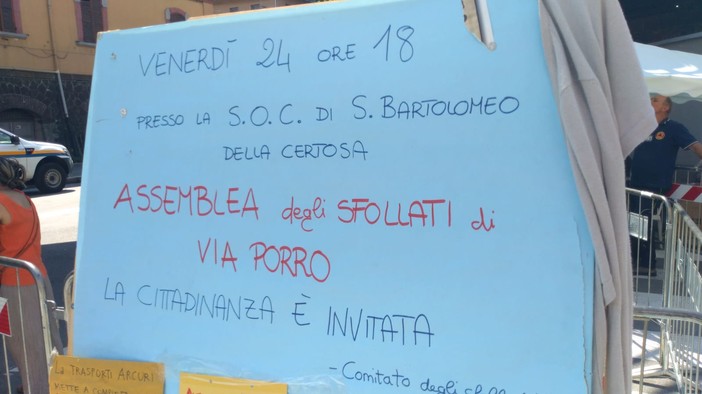 VENERDÌ 24 ORE 18
PRESSO LA S.O.C. DI S. BARTOLOMEO
DELLA CERTOSA
ASSEMBLEA degli SFOLLATI di
VIA PORRO
LA CITTADINANZA È INVITATA
- Comitato degli
LA TRASPORTI ARCURI
METTE A